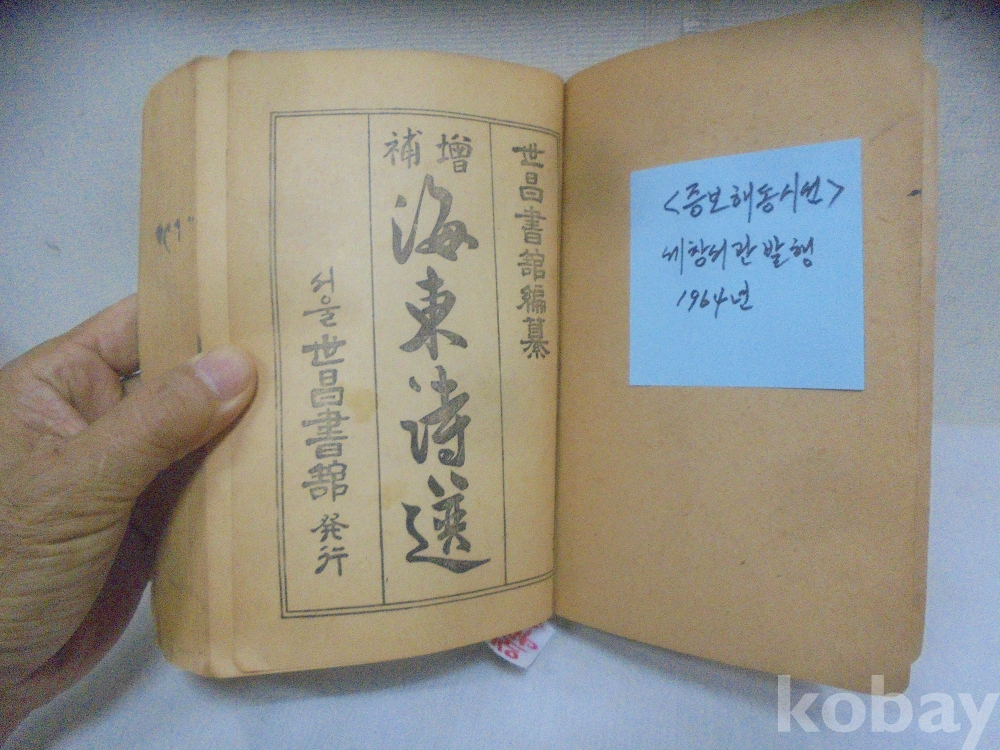 世昌書舘編纂
增補
海東诗選
서울 世昌書舘 発行
<증보해동시선>
세창서관 발행
1964년
kobay